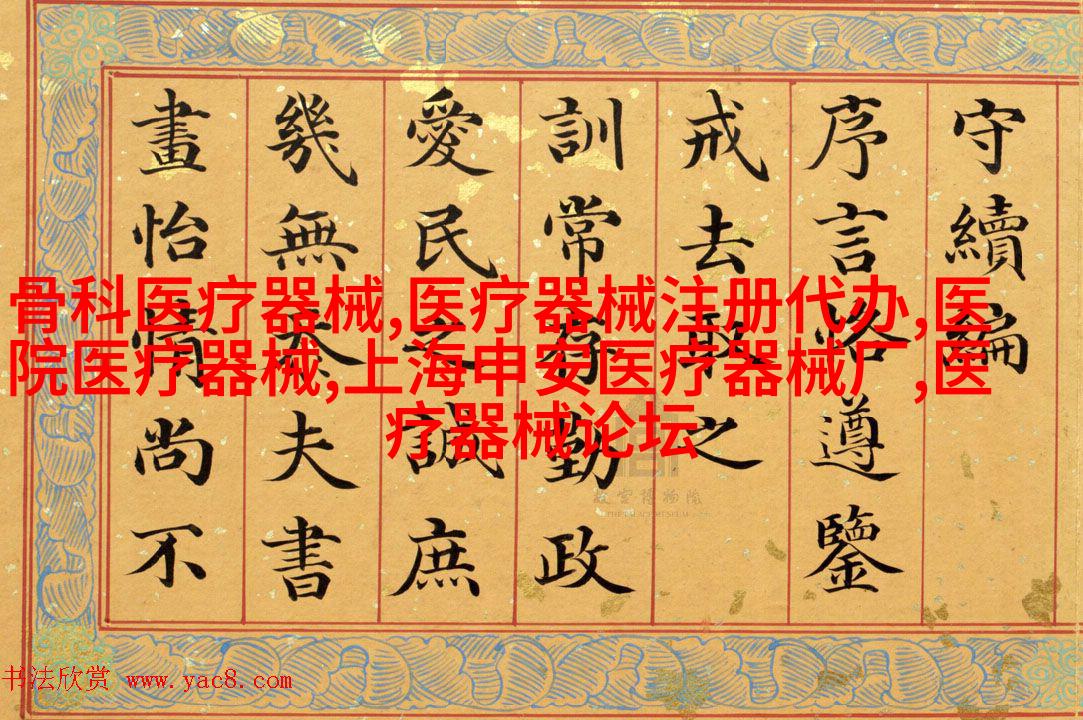 守續編
序言略遵鑒
戒去之
訓常存勤政
愛民之誠庶
幾無忝夫書
畫怡情尚不
骨科医疗器械,医疗器械注册代办,医
院医疗器械,上海申安医疗器械厂,医
疗器械论坛
故宮博物院
THE PALACE MUSEUM
书法欣赏 www.yac8.com